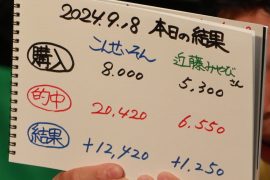 2024.9.18 本日の結果
こんせいそん 近藤みやびさん
購入 8.000 5,300
的中 20,420 6.550
結果 +12,420 +1.250